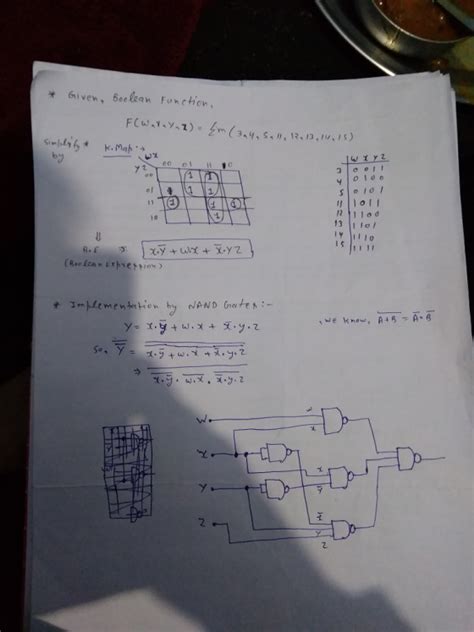 * Given, Boolean Function,
F(W,X,Y,Z) = Σm (3,4,5,11,12,13,14,15)
Simplify by * K.Map:→
WX
YZ 00 01 11 10
00 1 1
01 1 1
11 1 1 1
10 1
⇓
B.E ∴ x.ȳ + w.x + x̄.yz
(Boolean Expression)
W X Y Z
3 0 0 1 1
4 0 1 0 0
5 0 1 0 1
11 1 0 1 1
12 1 1 0 0
13 1 1 0 1
14 1 1 1 0
15 1 1 1 1
* Implementation by NAND Gates:-
Y = x.ȳ + w.x + x̄.y.z
, we know, \overline{A+B} = Ā.B̄
So, \overline{\overline{Y}} = \overline{\overline{x.ȳ + w.x + x̄.y.z}}
⇒ \overline{\overline{x.ȳ} . \overline{w.x} . \overline{x̄.y.z}}
W
X
Y
Z
x
x
ȳ
x̄
y
z